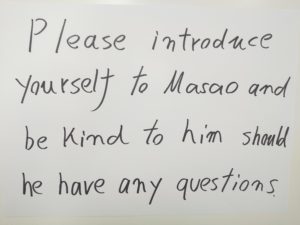 Please introduce
yourself to Masao and
be kind to him should
he have any questions.